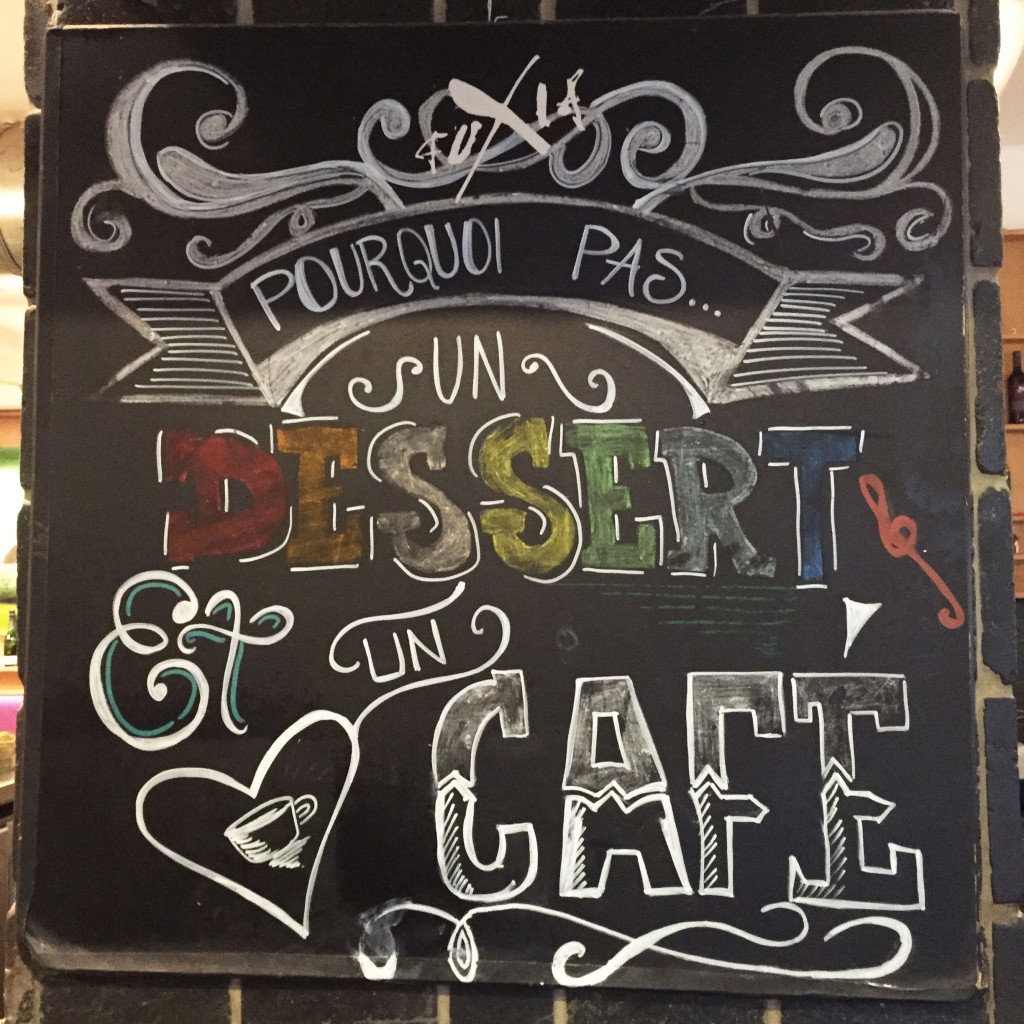 FUXIA
POURQUOI PAS...
UN
DESSERT
Et UN
CAFÉ